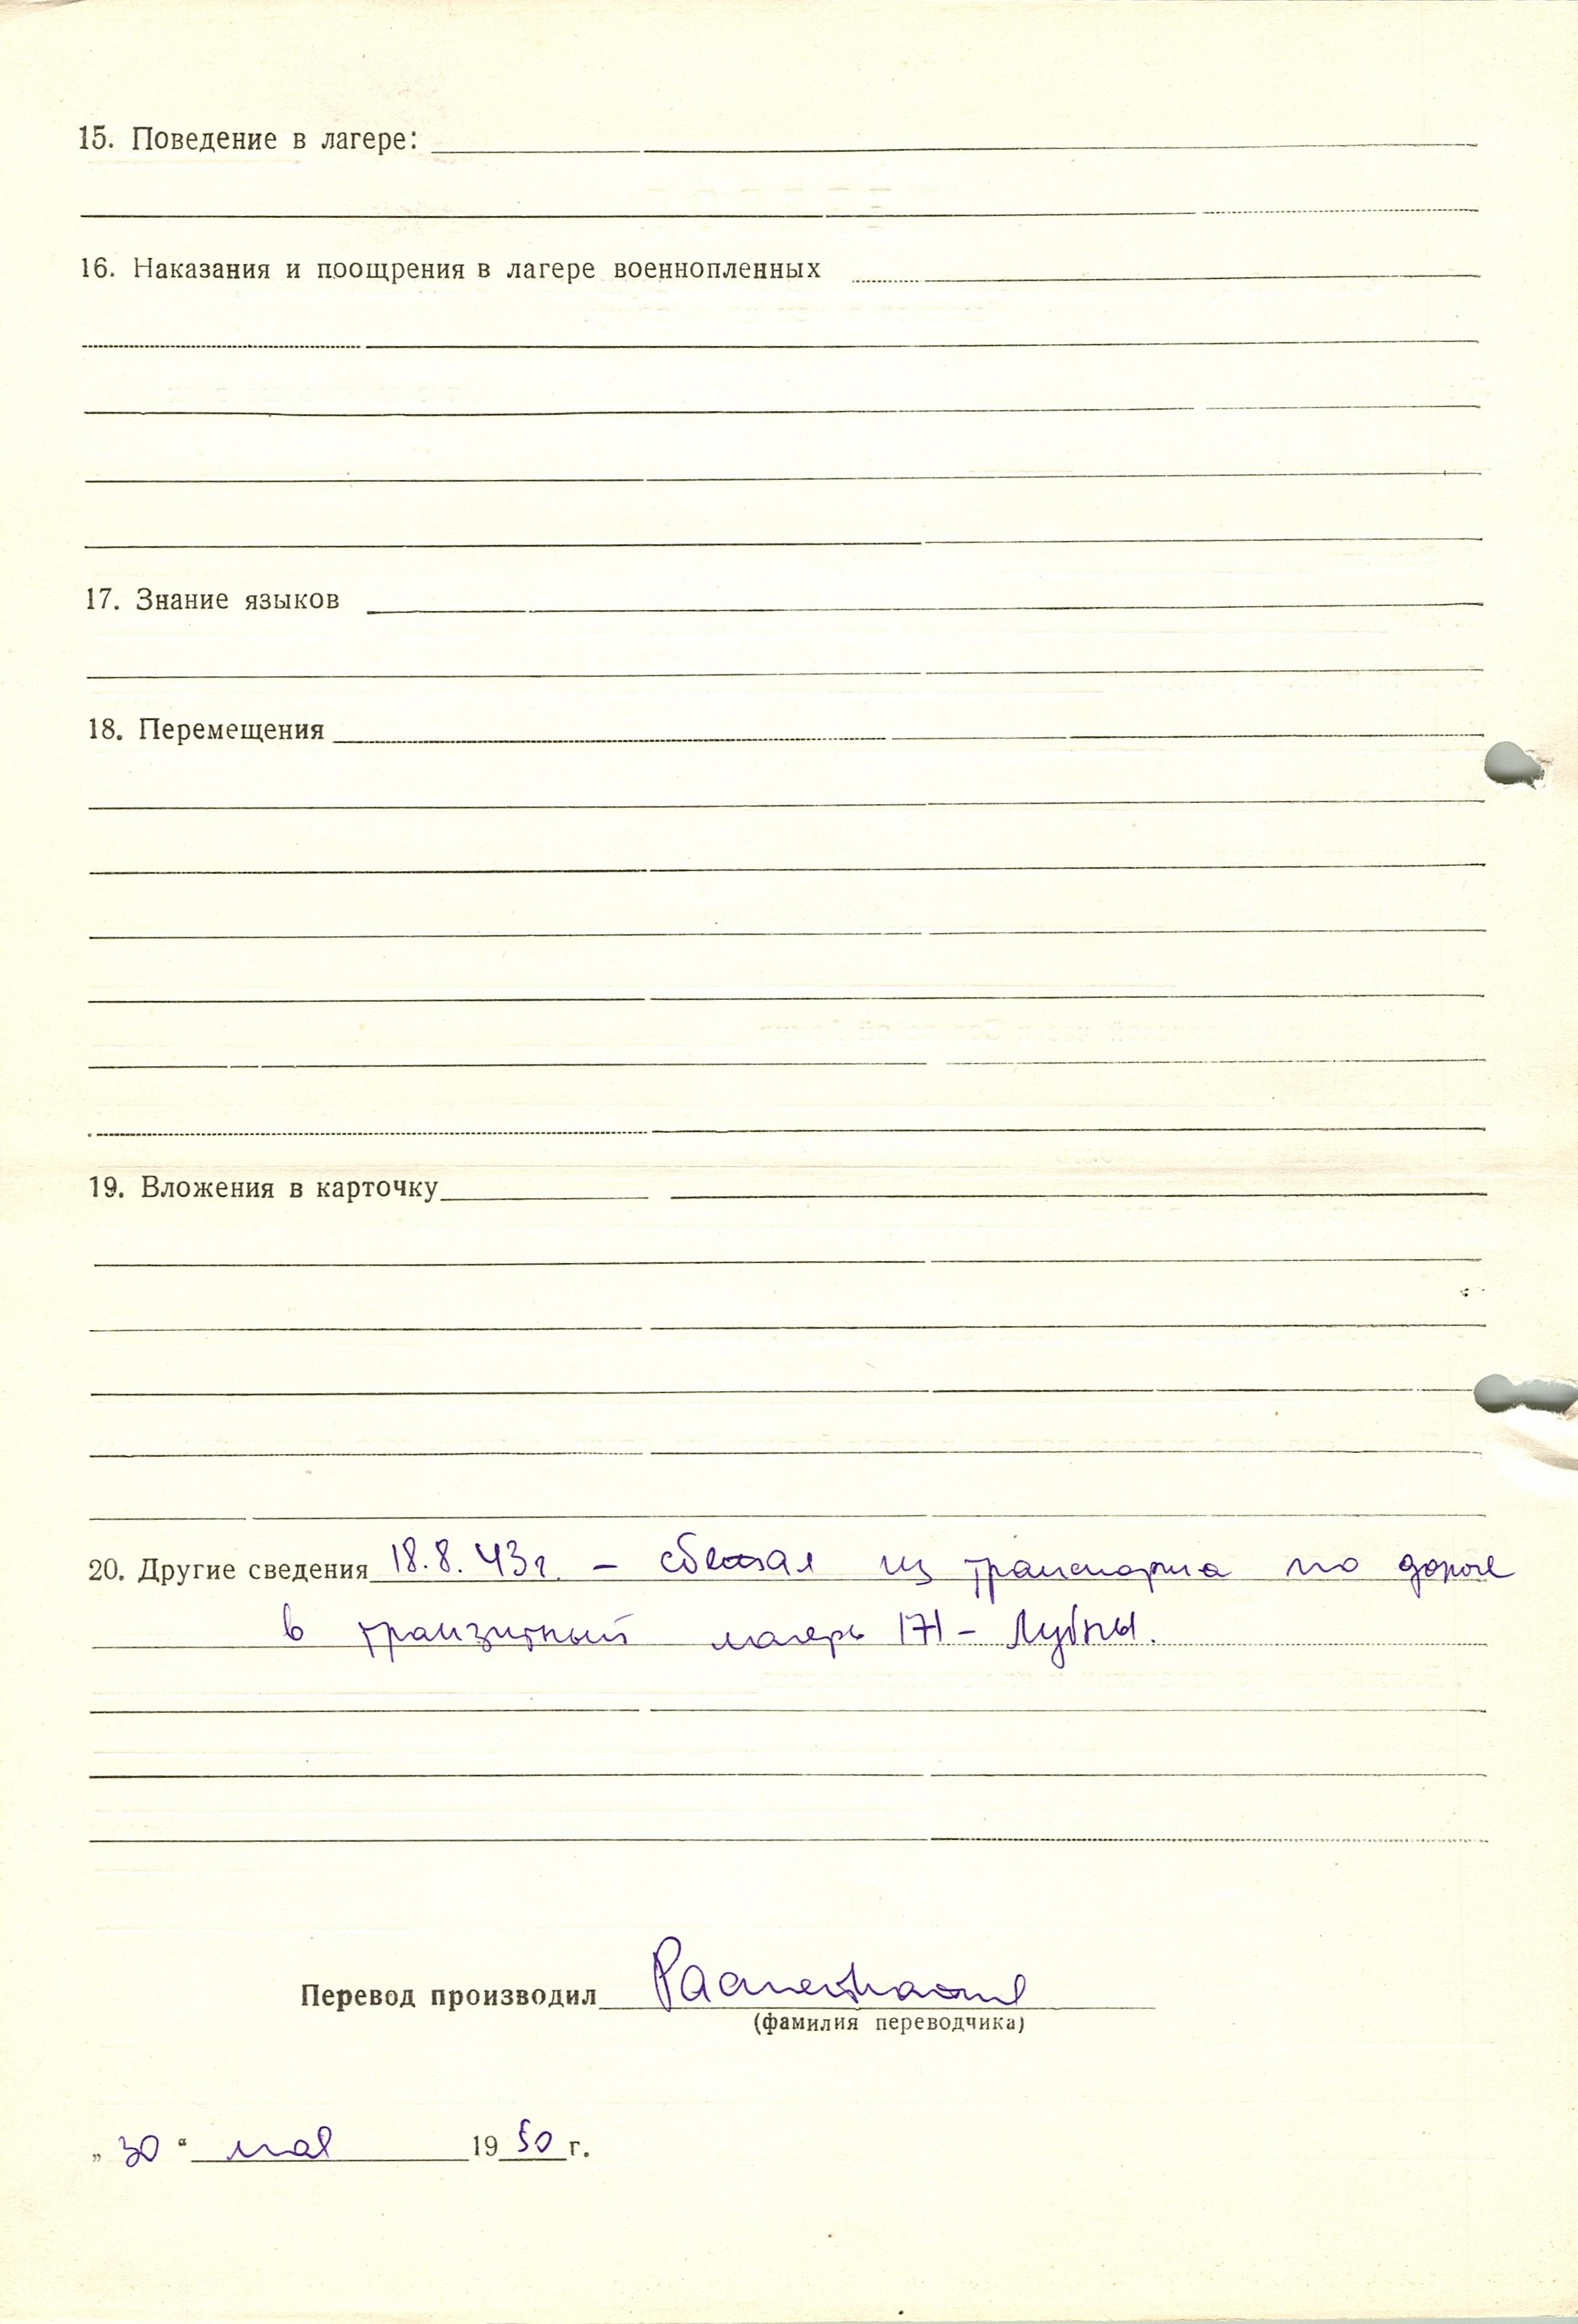 15. Поведение в лагере:
16. Наказания и поощрения в лагере военнопленных
17. Знание языков
18. Перемещения
19. Вложения в карточку
20. Другие сведения 18.8.43г. – сбежал из транспорта по дороге
в транзитный лагерь 171 – Лубны.
Перевод производил
(фамилия переводчика)
„ 30 “ мая 1950 г.